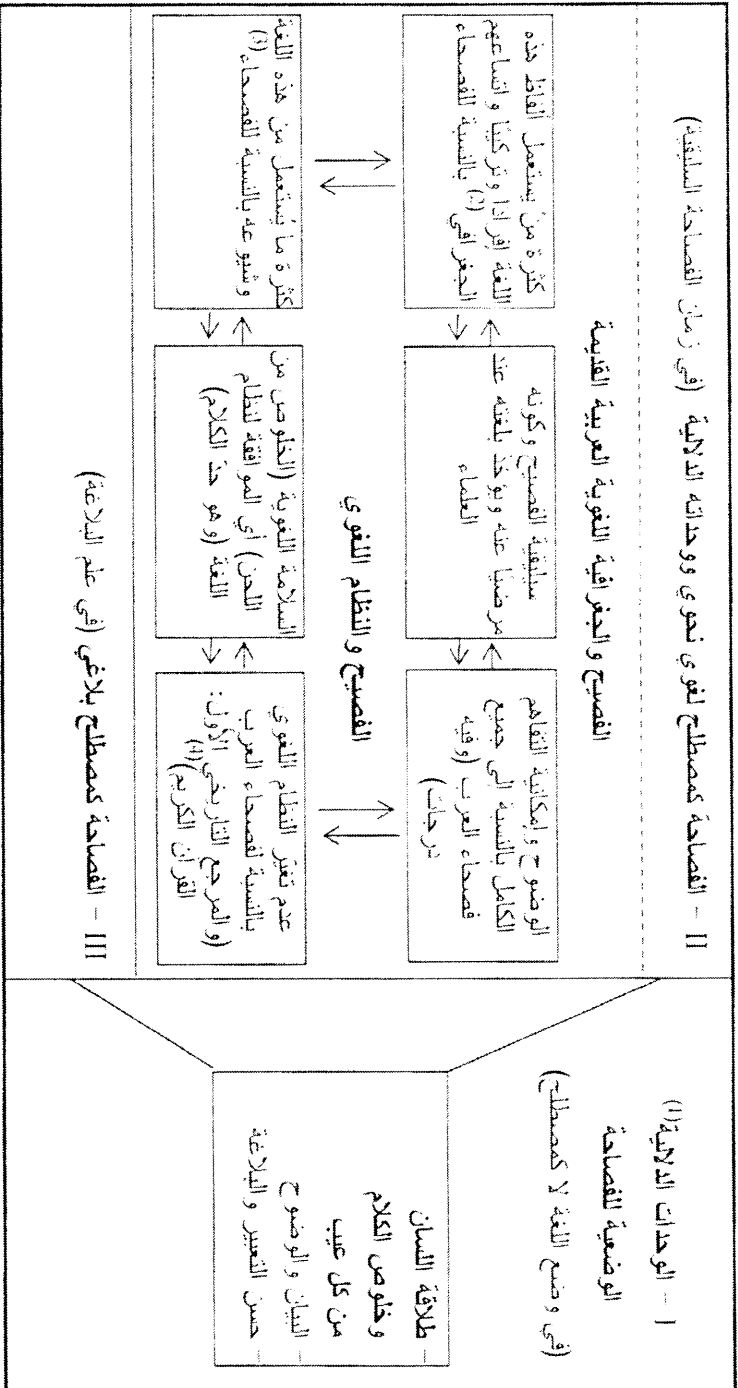 I – الوحدات الدلالية(1)
الوضعية للفصاحة
(في وضع اللغة لا كمصطلح)
– طلاقة اللسان
وخلوص الكلام
من كل عيب
– البيان والوضوح
– حسن التعبير والبلاغة
II – الفصاحة كمصطلح لغوي نحوي ووحداته الدلالية (في زمان الفصاحة السليقية)
الفصيح والجغرافية اللغوية العربية القديمة
الوضوح وإمكانية التفاهم
الكامل بالنسبة إلى جميع
فصحاء العرب (وفيه
درجات)
سليقية الفصيح وكونه
مرضيًا عنه ويؤخذ بلغته عند
العلماء
كثرة من يستعمل ألفاظ هذه
اللغة إفرادًا وتركيبًا واتساعهم
الجغرافي(2) بالنسبة للفصحاء
الفصيح والنظام اللغوي
عدم تغيّر النظام اللغوي
بالنسبة لفصحاء العرب
(والمرجع التاريخي الأول:
القرآن الكريم)(4)
السلامة اللغوية (الخلوص من
اللحن) أي الموافقة لنظام
اللغة (وهو حدّ الكلام)
كثرة ما يُستعمل من هذه اللغة
وشيوعه بالنسبة للفصحاء(3)
III – الفصاحة كمصطلح بلاغي (في علم البلاغة)